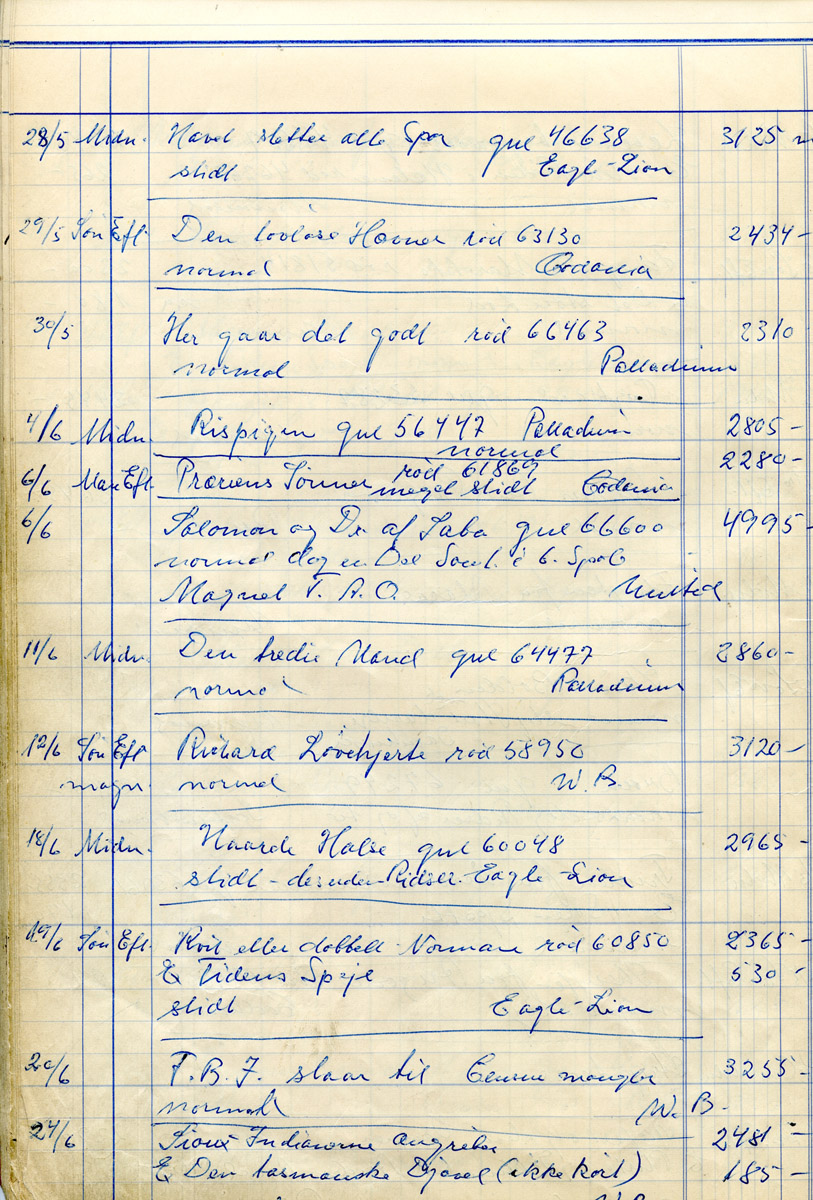 28/5 Midn. Havet sletter alle Spor gul 46638 3125 m
slidt Eagle-Lion
29/5 Søn Eft. Den lovløse Hævner rød 63130 2434-
normal Godania
30/5 Her gaar det godt rød 66463 2310
normal Palladium
4/6 Midn. Rispigen gul 56447 Palladium 2805-
normal
6/6 Man Eft. Præriens Sønner rød 61869 2280-
meget slidt Godania
6/6 Salomon og Dr. af Saba gul 66600 4995-
normal dog en Del i 6. Spole
Magnet T. A. O. United
11/6 Midn. Den tredie Mand gul 64477 2860-
normal Palladium
12/6 Søn Eft Richard Løvehjerte rød 58950 3120-
magn. normal W. B.
18/6 Midn. Haarde Halse gul 60048 2965-
slidt - desuden Ridser. Eagle-Lion
19/6 Søn Eft. Kvit eller dobbelt - Normane rød 60850 2365-
& Tidens Spejl 530-
slidt Eagle-Lion
20/6 F.B.I. slaar til Censur mangler 3255-
normal W. B.
24/6 Sioux Indianerne angriber 2481-
& Den tasmanske Djævel (ikke kørt) 185-
W B